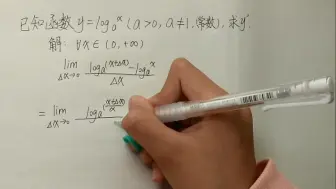 已知函数 y = logₐx (a>0, a≠1, 常数), 求 y'
解: ∀x∈(0, +∞)
lim Δx→0 (logₐ(x+Δx) - logₐx) / Δx
= lim Δx→0 logₐ((x+Δx)/x)